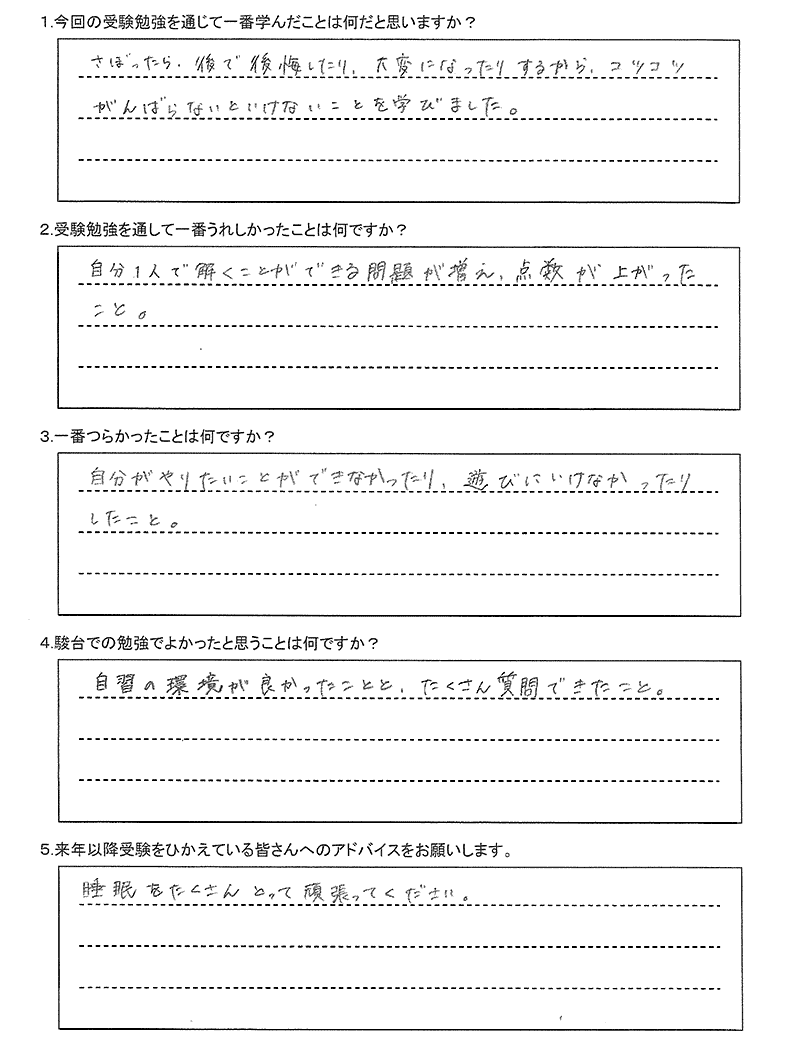 1.今回の受験勉強を通じて一番学んだことは何だと思いますか？
さぼったら、後で後悔したり、大変になったりするから、コツコツ
がんばらないといけないことを学びました。
2.受験勉強を通して一番うれしかったことは何ですか？
自分1人で解くことができる問題が増え、点数が上がった
こと。
3.一番つらかったことは何ですか？
自分がやりたいことができなかったり、遊びにいけなかったり
したこと。
4.駿台での勉強でよかったと思うことは何ですか？
自習の環境が良かったことと、たくさん質問できたこと。
5.来年以降受験をひかえている皆さんへのアドバイスをお願いします。
睡眠をたくさんとって頑張ってください。